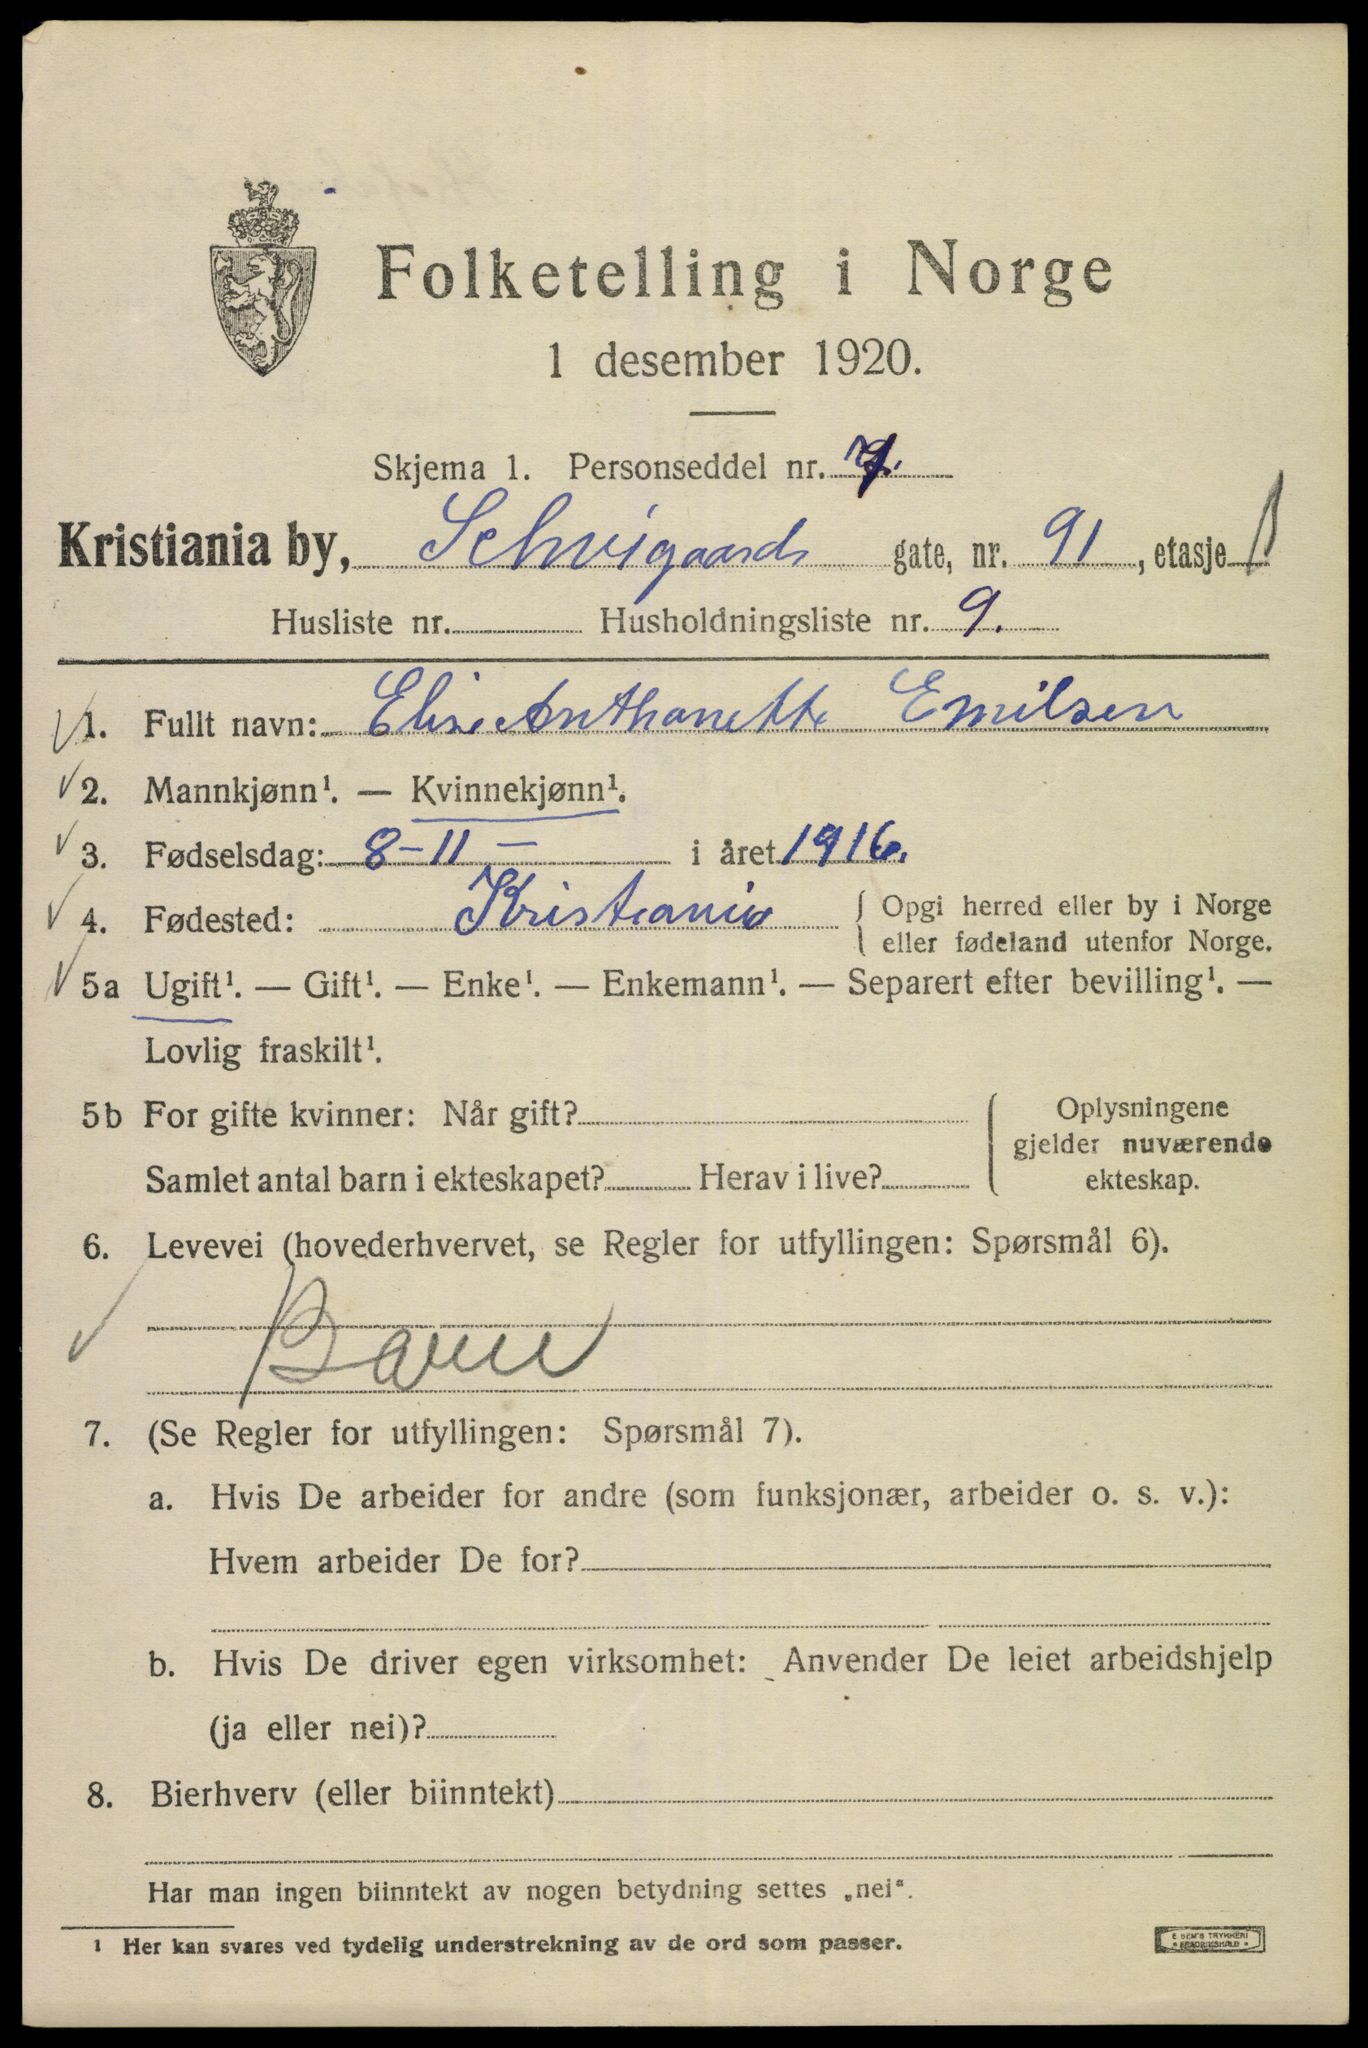 Folketelling i Norge
1 desember 1920.
Skjema 1. Personseddel nr. 7.
Kristiania by, Schweigaards gate, nr. 91, etasje
Husliste nr. Husholdningsliste nr. 9.
1. Fullt navn: Elise Anthonette Emilsen
2. Mannkjønn¹. — Kvinnekjønn¹.
3. Fødselsdag: 8-11- i året 1916.
4. Fødested: Kristiania { Opgi herred eller by i Norge
eller fødeland utenfor Norge.
5a Ugift¹. — Gift¹. — Enke¹. — Enkemann¹. — Separert efter bevilling¹. —
Lovlig fraskilt¹.
5b For gifte kvinner: Når gift?
Samlet antal barn i ekteskapet? Herav i live?
{ Oplysningene
gjelder nuværende
ekteskap.
6. Levevei (hovederhvervet, se Regler for utfyllingen: Spørsmål 6).
Barn
7. (Se Regler for utfyllingen: Spørsmål 7).
a. Hvis De arbeider for andre (som funksjonær, arbeider o. s. v.):
Hvem arbeider De for?
b. Hvis De driver egen virksomhet: Anvender De leiet arbeidshjelp
(ja eller nei)?
8. Bierhverv (eller biinntekt)
Har man ingen biinntekt av nogen betydning settes „nei“.
¹ Her kan svares ved tydelig understrekning av de ord som passer.
E. SEM'S TRYKKERI
FREDRIKSHALD